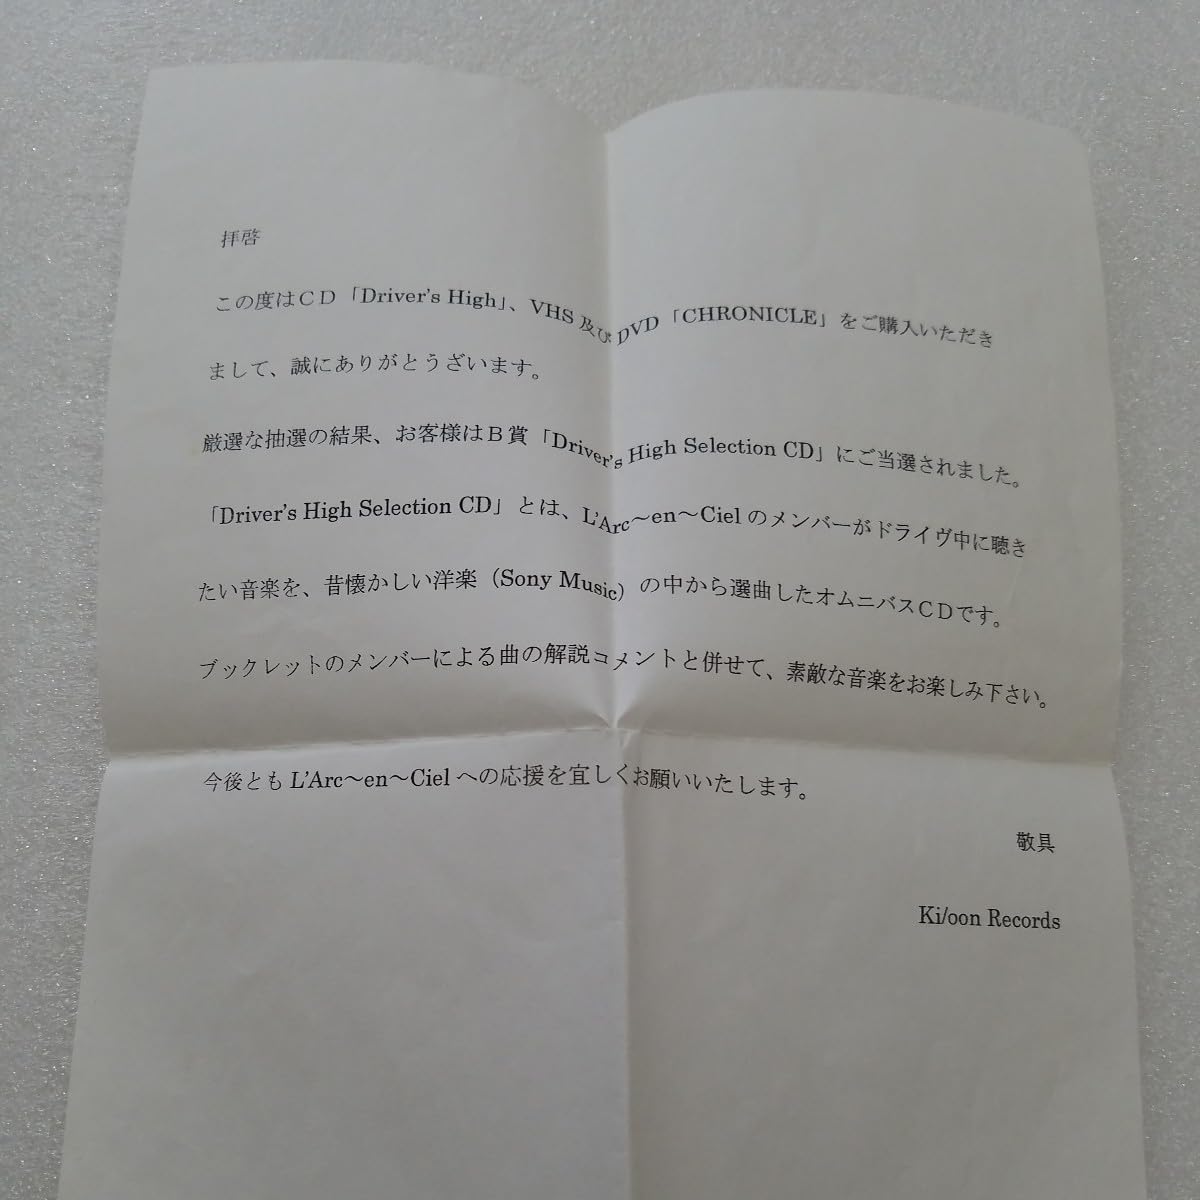 拝啓
この度はCD「Driver's High」、VHS及びDVD「CHRONICLE」をご購入いただき
まして、誠にありがとうざいます。
厳選な抽選の結果、お客様はB賞「Driver's High Selection CD」にご当選されました。
「Driver's High Selection CD」とは、L'Arc〜en〜Cielのメンバーがドライヴ中に聴き
たい音楽を、昔懐かしい洋楽（Sony Music）の中から選曲したオムニバスCDです。
ブックレットのメンバーによる曲の解説コメントと併せて、素敵な音楽をお楽しみ下さい。
今後ともL'Arc〜en〜Cielへの応援を宜しくお願いいたします。
敬具
Ki/oon Records